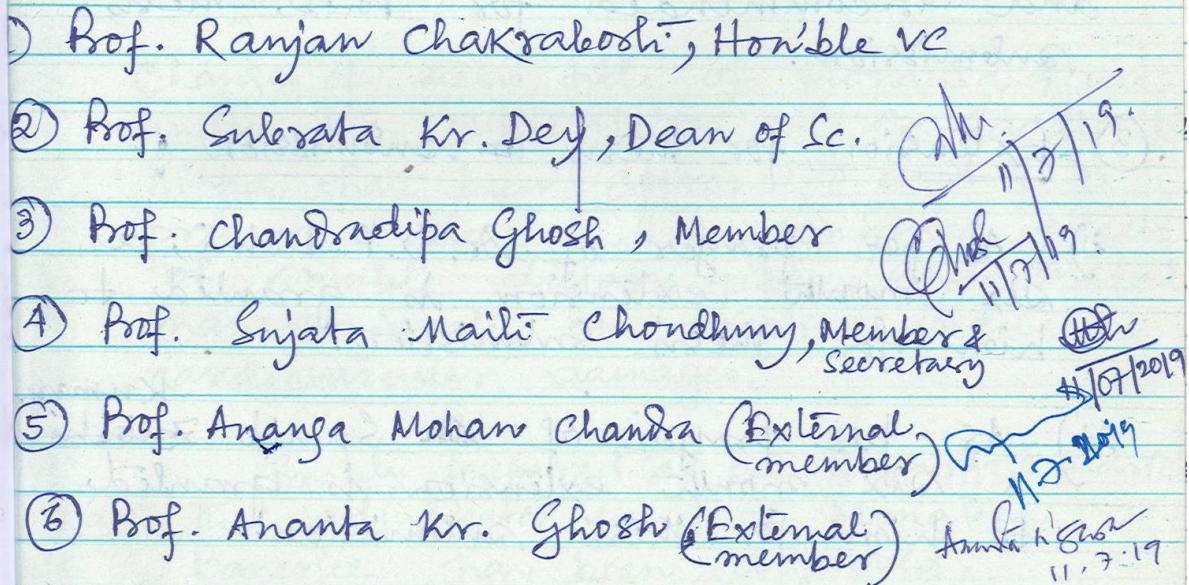 1) Prof. Ranjan Chakraborti, Hon'ble VC
2) Prof. Subrata Kr. Dey, Dean of Sc.
11/7/19.
3) Prof. Chandradipa Ghosh, Member
Ghosh
11/7/19.
4) Prof. Sujata Maiti Choudhury, Member &
Secretary
11/07/2019
5) Prof. Ananga Mohan Chandra (External
member)
11.7.2019
6) Prof. Ananta Kr. Ghosh (External
member)
Ananta Kr Ghosh
11.7.19